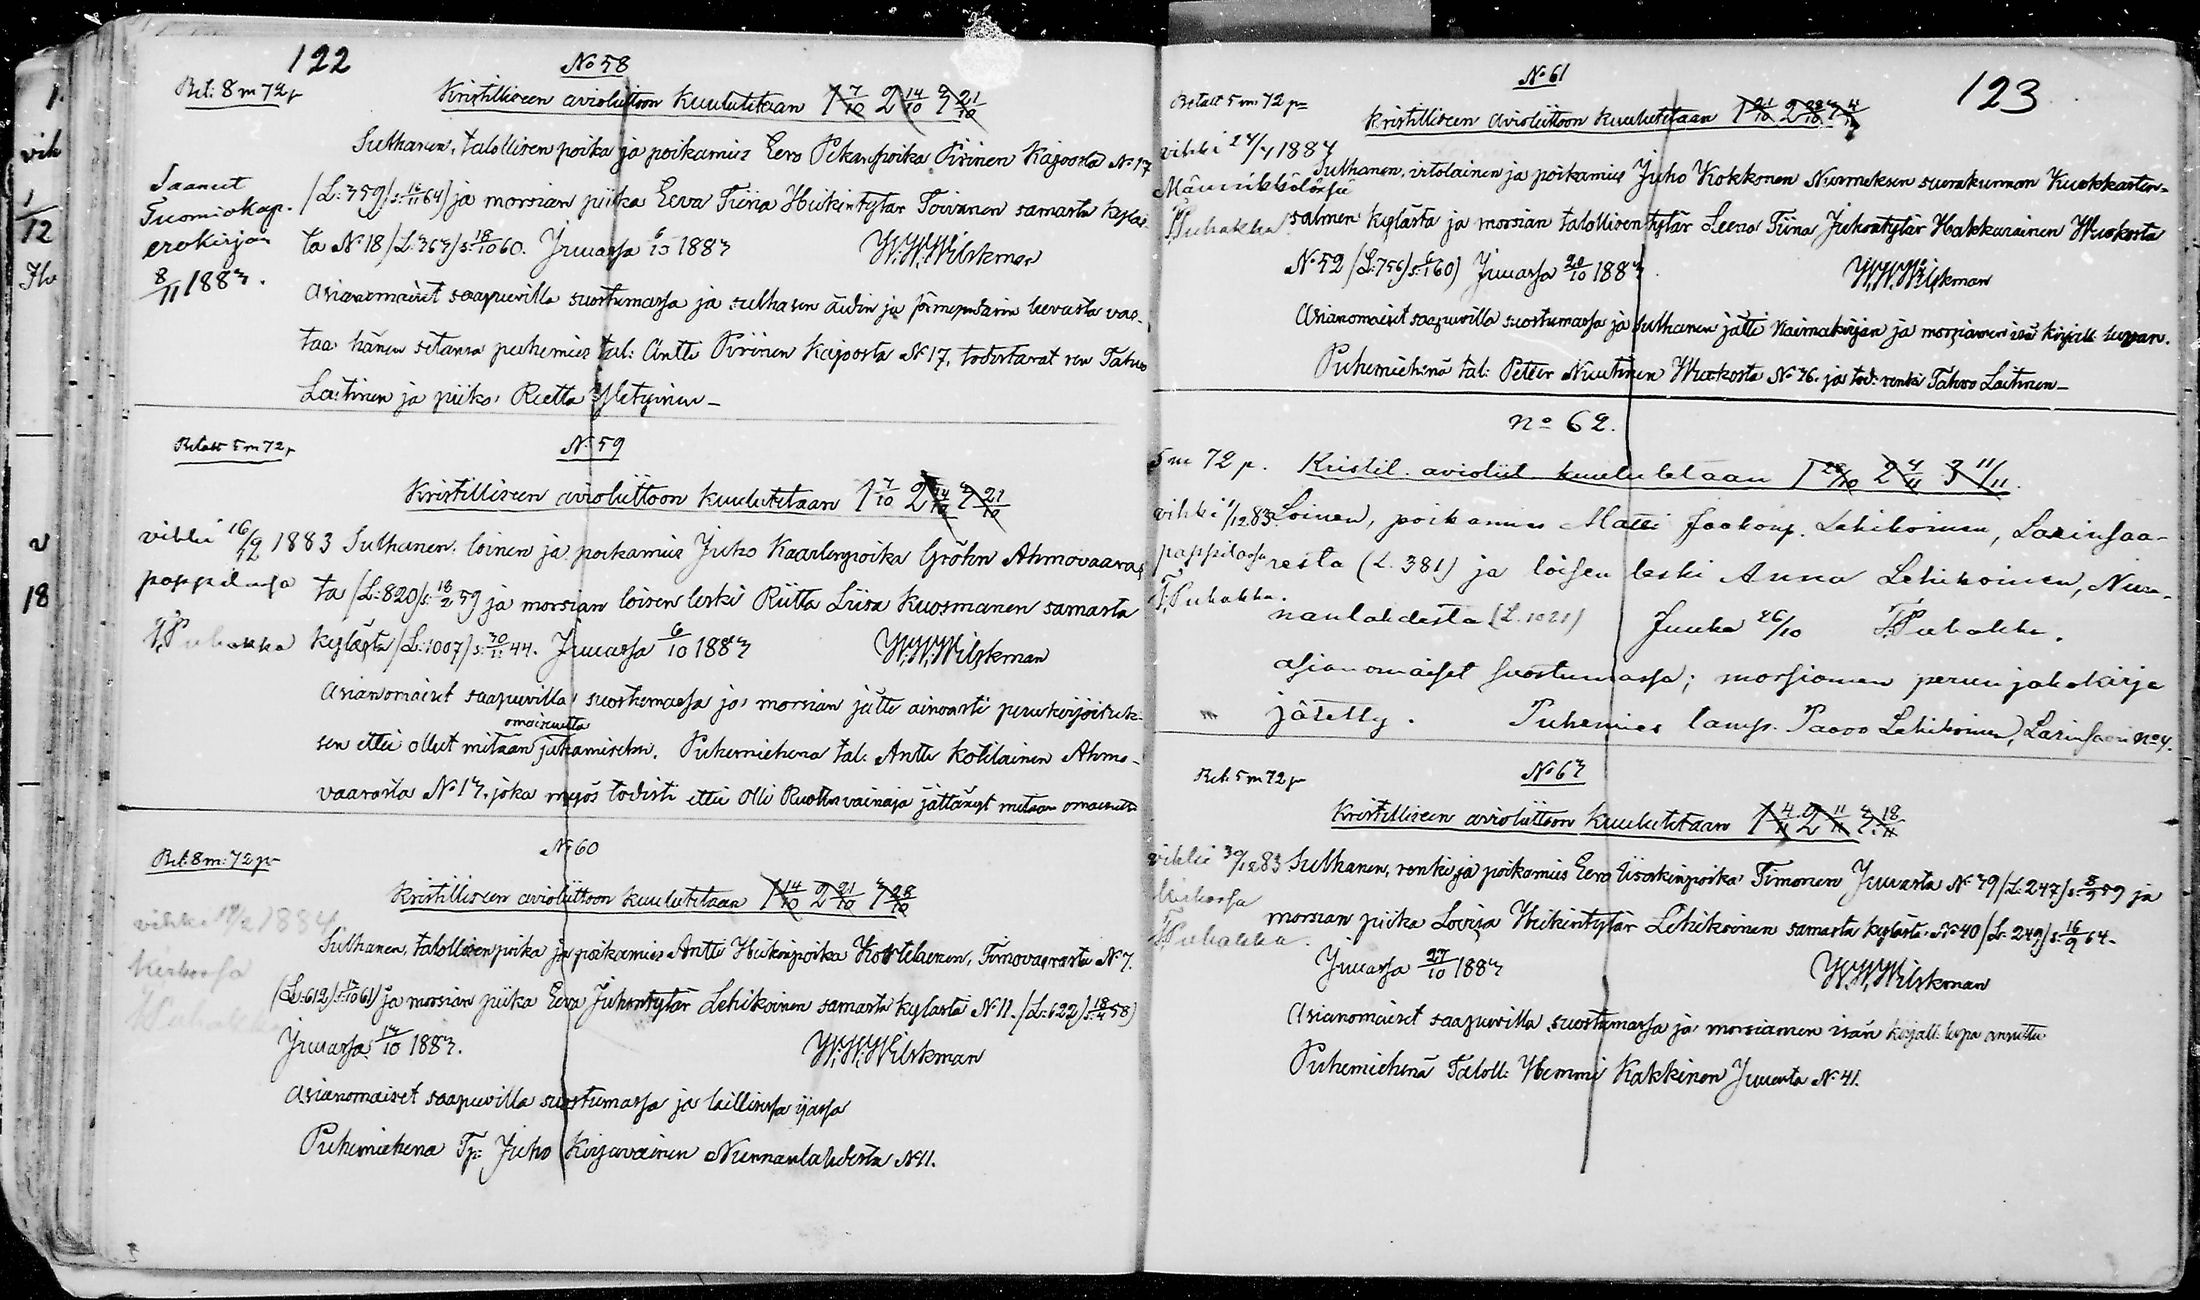 122
No 58
Bet: 8 m 72 p
Kristilliseen avioliittoon kuulutetaan 1 7/10 2 14/10 3 21/10
Sulhanen, talollisen poika ja poikamies Eero Pekanpoika Piirinen Kajoosta No 17
(L: 359) s: 16/11 64) ja morsian piika Eeva Tiina Heikintytär Toivanen samasta kyläs-
tä No 18 (L: 363) s: 18/10 60. Juuassa 6/10 1883 W.W.Wilskman
Saanut
Tuomiokap.
erokirjan
8/11 1883.
Asianomaiset saapuvilla suostumassa ja sulhasen äidin ja luvasta vas-
taa hänen setänsä puhemies tal: Antti Piirinen Kajoosta No 17, todistavat ren Tahvo
Laitinen ja piika Reetta
Betalt 5 m 72 p
No 59
Kristilliseen avioliittoon kuulutetaan 1 7/10 2 14/10 3 21/10
vihki 16/12 1883
pappilassa
T.Puhakka
Sulhanen, loinen ja poikamies Juho Kaarlenpoika Gröhn Ahmovaaras
ta (L: 820) s: 18/2 59 ja morsian loisen leski Riitta Liisa Kuosmanen samasta
kylästä (L: 1007) s: 30/11 44. Juuassa 6/10 1883 W.W.Wilskman
Asianomaiset saapuvilla suostumassa ja morsian jätti ainoasti perukirjoituk-
omaisuutta
sen ettei ollut mitään jakamiseksi. Puhemiehenä tal: Antti Kotilainen Ahmo-
vaarasta No 13. joka myös todisti ettei Olli vainaja jättänyt mitään omaisuutta
No 60
Bet: 8 m: 72 p
Kristilliseen avioliittoon kuulutetaan 1 14/10 2 21/10 3 28/10
1884
kirkossa
TPuhakka
Sulhanen, talollisen poika ja poikamies Antti Heikinpoika Kortelainen, Timovaarasta No 7.
(L: 612) 61) ja morsian piika Eeva Juhontytär Lehikoinen samasta kylästä No 11. (L: 622) s: 18/4 58)
Juuassa 13/10 1883. W.W.Wilskman
Asianomaiset saapuvilla suostumassa ja laillisessa ijässä
Puhemiehenä Tp: Juho Kirjavainen Nunnanlahdesta No 11.
123
No 61
Betalt 5 m 72 p
Kristilliseen avioliittoon kuulutetaan 1 21/10 2 28/10 3 4/11
vihki 1884
Männikkölässä
TPuhakka
Sulhanen, irtolainen ja poikamies Juho Kokkonen Nurmeksen seurakunnan Kuokkasten-
salmen kylästä ja morsian talollisentytär Leena Tiina Juhontytär Hakkarainen Wuokosta
No 52 (L: 756) 60) Juuassa 20/10 1883. W.W.Wilskman
Asianomaiset saapuvilla suostumassa ja sulhanen jätti naimakirjan ja morsiamen isä kirjall: luvan.
Puhemiehenä tal: Petter Nuutinen Wuokosta No 36. ja tod: renki Tahvo Laitinen
no 62.
5 m 72 p. Kristil. avioliit. kuulutetaan 1 28/10 2 4/11 3 11/11.
vihki 1/12 83
pappilassa
T.Puhakka.
Loinen, poikamies Matti Jaakonp. Lehikoinen, Larinsaa-
resta (L. 381) ja loisen leski Anna Lehikoinen, Nun-
nanlahdesta (L. 1021) Juuka 26/10 T.Puhakka.
Asianomaiset suostumassa; morsiamen perunjakokirja
jätetty. Puhemies lamp. Paavo Lehikoinen, Larinsaari no 4.
Bet: 5 m 72 p
No 63
Kristilliseen avioliittoon kuulutetaan 1 4/11 2 11/11 3 18/11
vihki 30/12 83
kirkossa
TPuhakka.
Sulhanen, renki ja poikamies Eero Iisakinpoika Timonen Juuasta No 39 (L: 247) s: 8/9 59 ja
morsian piika Loviisa Heikintytär Lehikoinen samasta kylästä No 40 (L: 249) s: 16/9 64.
Juuassa 27/10 1883 W.W.Wilskman
Asianomaiset saapuvilla suostumassa ja morsiamen isän kirjall. lupa annettu
Puhemiehenä Taloll: Hemmi Kakkinen Juuasta No 41.